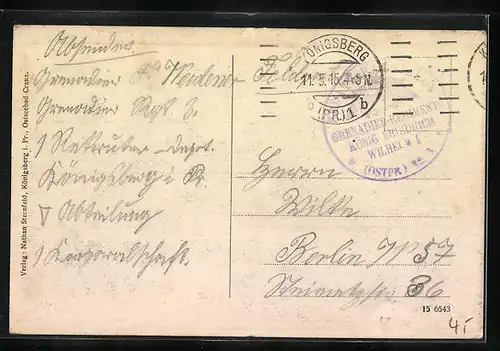 Absender
Grenadier F. Weidener
Grenadier Rgt. 3.
1 Rekruten-Depot.
Königsberg i. Pr.
V Abteilung
1 Korporalschaft.
Verlag: Nathan Sternfeld, Königsberg i. Pr., Ostseebad Cranz.
Feld
KÖNIGSBERG
11.3.15.4-5N.
b (PR.) 1 b
GRENADIER-REGIMENT
KÖNIG FRIEDRICH
WILHELM I
(OSTPR.) No. 3
Herrn
Wilke
Berlin W 57
Steinmetzstr. 36
15 6543
4,-